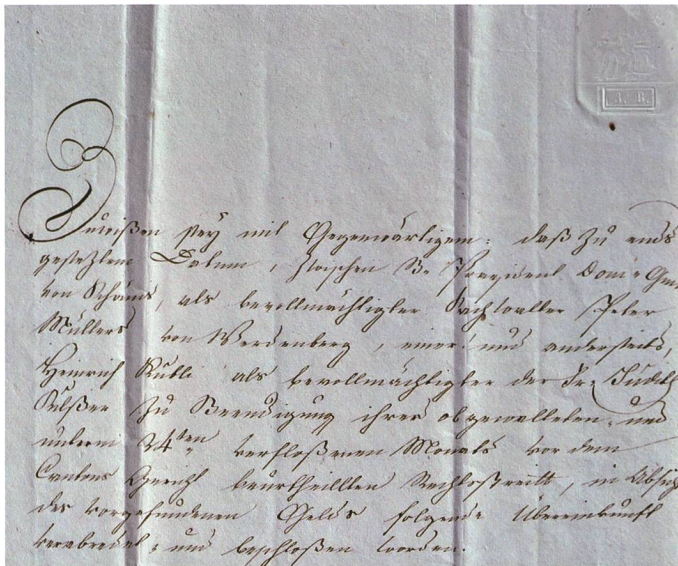 A. B.
Zuwißen seÿ mit Gegenwärtigem: daß zu ends
gesetztem Datum, zwischen Br. Præsident Dom: Gm
von Schänis, als bevollmächtigter Sachwalter Peter
Müllers von Werdenberg, einer und anderseits,
Heinrich Kubli als bevollmächtigter der Fr. Judith
zu Beendigung ihres obgewalleten und
unterm 24ten verfloßenen Monats vor dem
Cantons Gericht beurtheillten Rechtsstreitt, in Absich
des vorgefundenen Gelds folgende Übereinkunft
verabredet, und beschloßen worden.